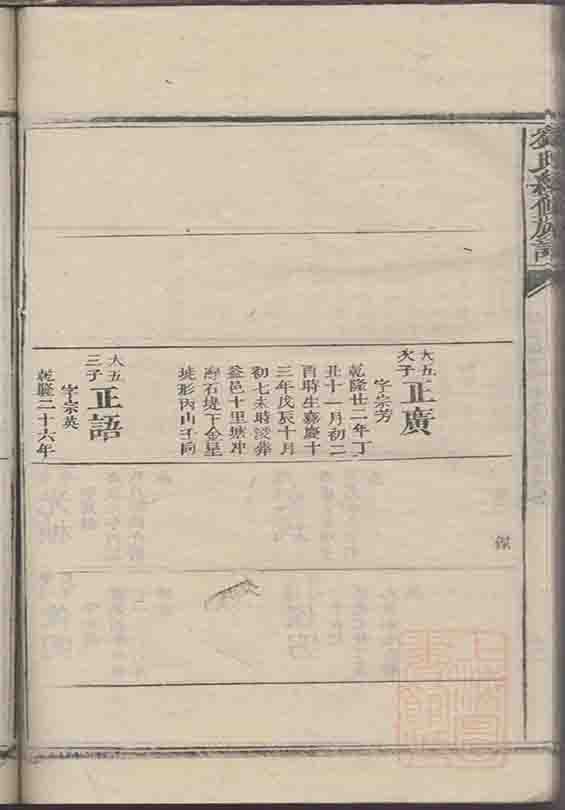 氏續修族譜
大五
次子
正廣
字宗芳
乾隆廿二年丁
丑十一月初二
酉時生嘉慶十
三年戊辰十月
初七未時没葬
益邑十里塘冲
石堤下金星
形丙山壬向
大五
三子
正語
字宗英
乾隆二十六年
上海圖書館藏